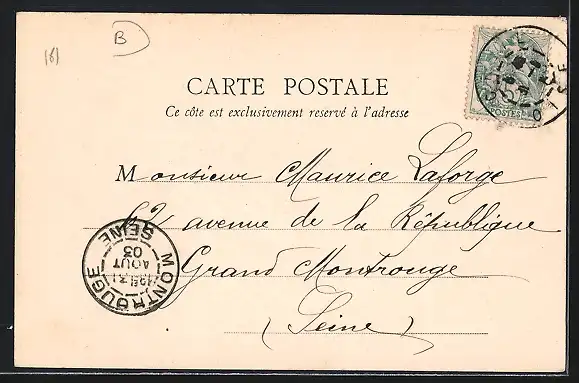 (6)
B
CARTE POSTALE
Ce côte est exclusivement reservé à l'adresse
POSTES
Monsieur Maurice Laforge
62 avenue de la République
Grand Montrouge
(Seine)
MONTROUGE
SEINE
31
AOUT
03